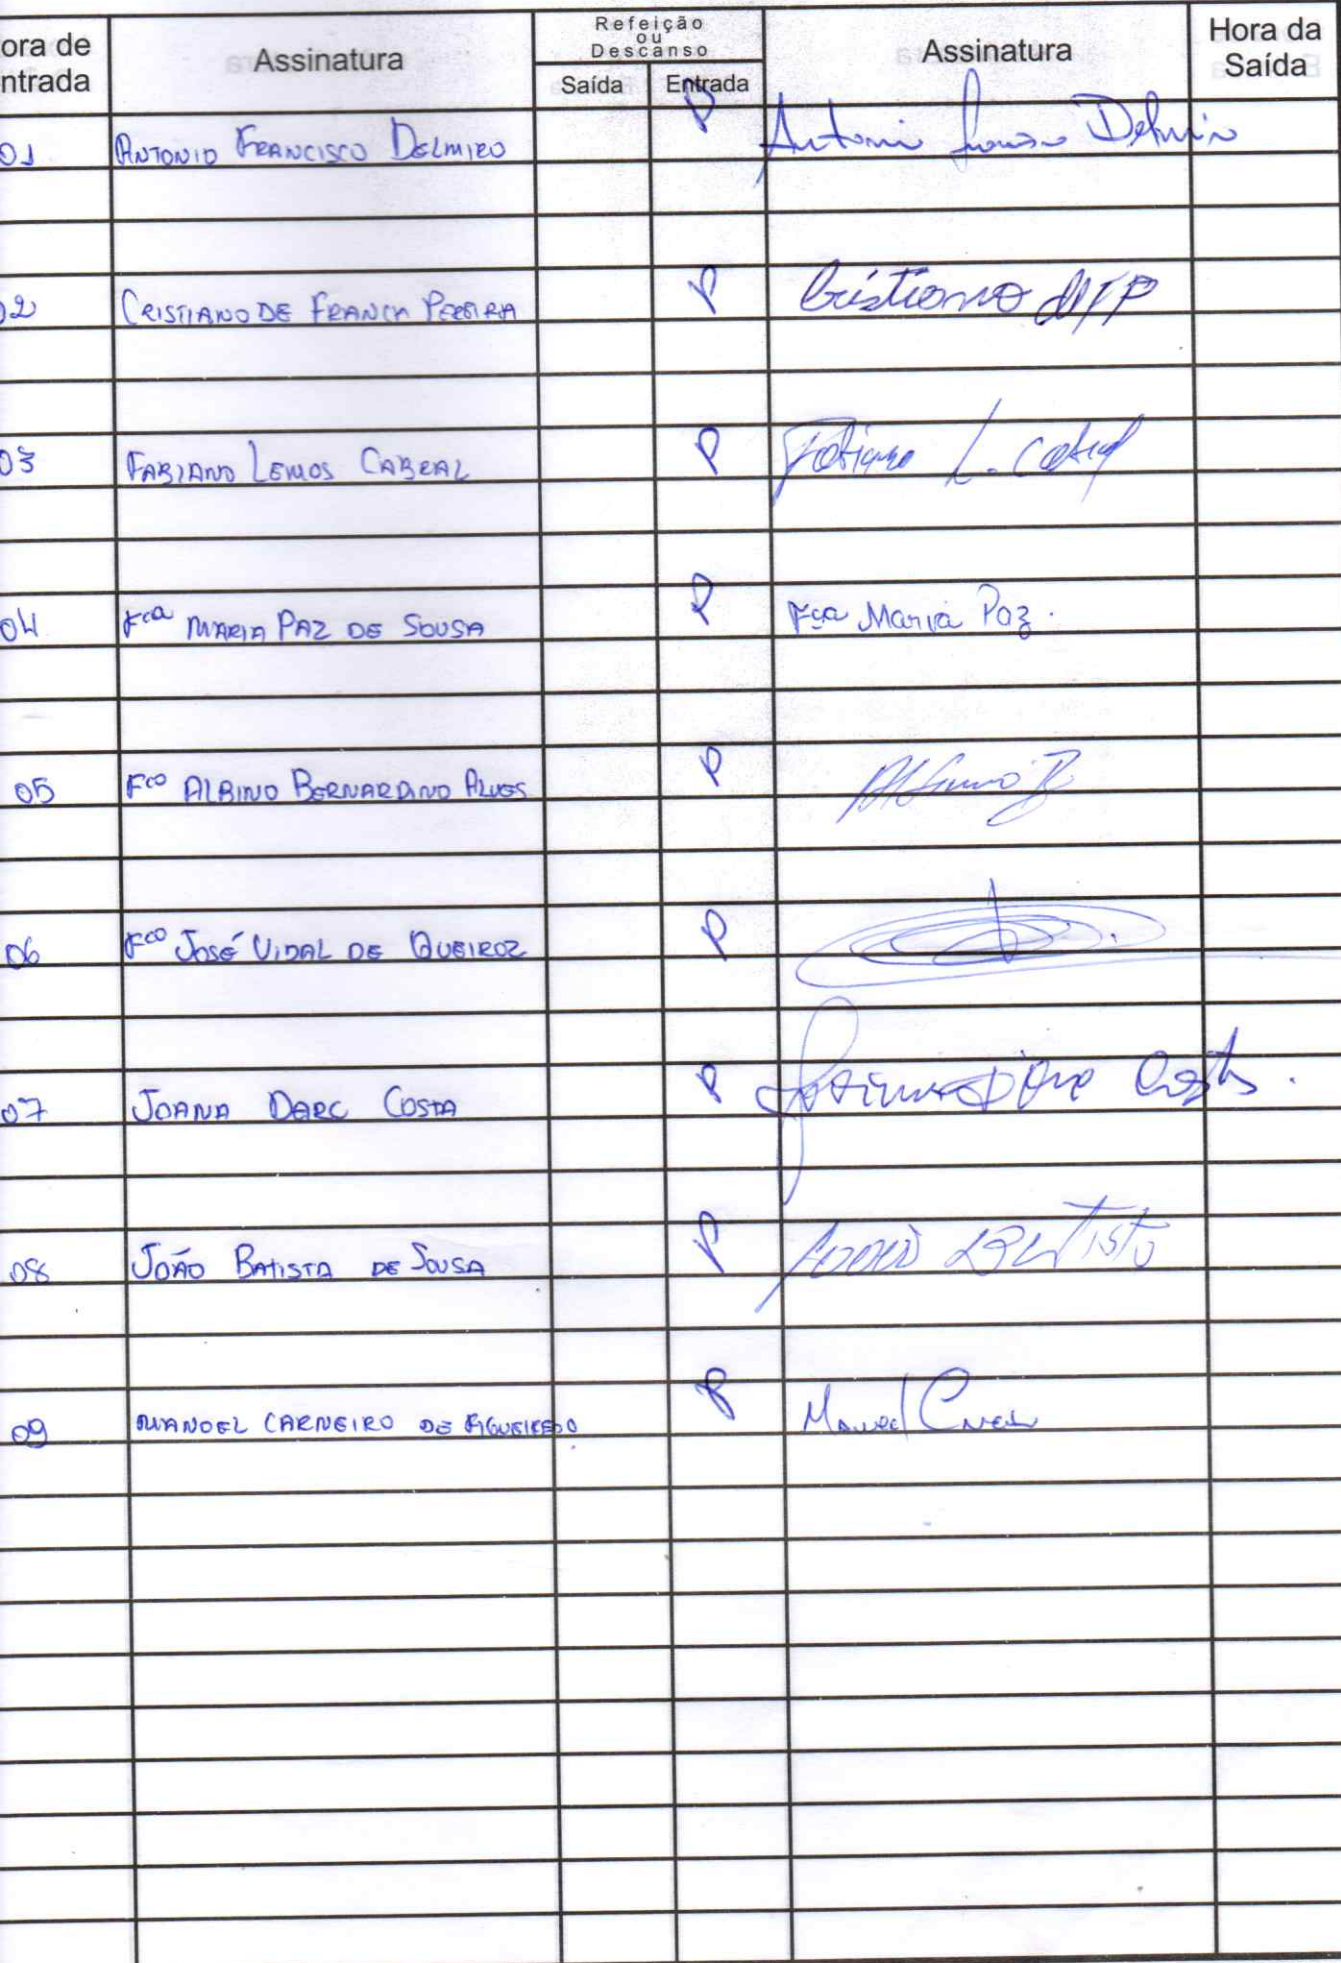 ora de
ntrada
Assinatura
Refeição
ou
Descanso
Saída Entrada
Assinatura
Hora da
Saída
01 ANTONIO FRANCISCO DELMIRO P Antonio Delmiro
02 CRISTIANO DE FRANCA PEREIRA P Cristiano
03 FABIANO LEMOS CABRAL P Fabiano L. Cabral
04 Fca MARIA PAZ DE SOUSA P Fca Maria Paz.
05 Fco ALBINO BERNARDINO ALVES P Albino B
06 Fco JOSÉ VIDAL DE QUEIROZ P
07 JOANA DARC COSTA P Costa.
08 JOÃO BATISTA DE SOUSA P Batista
09 MANOEL CARNEIRO DE FIGUEIREDO P Manoel